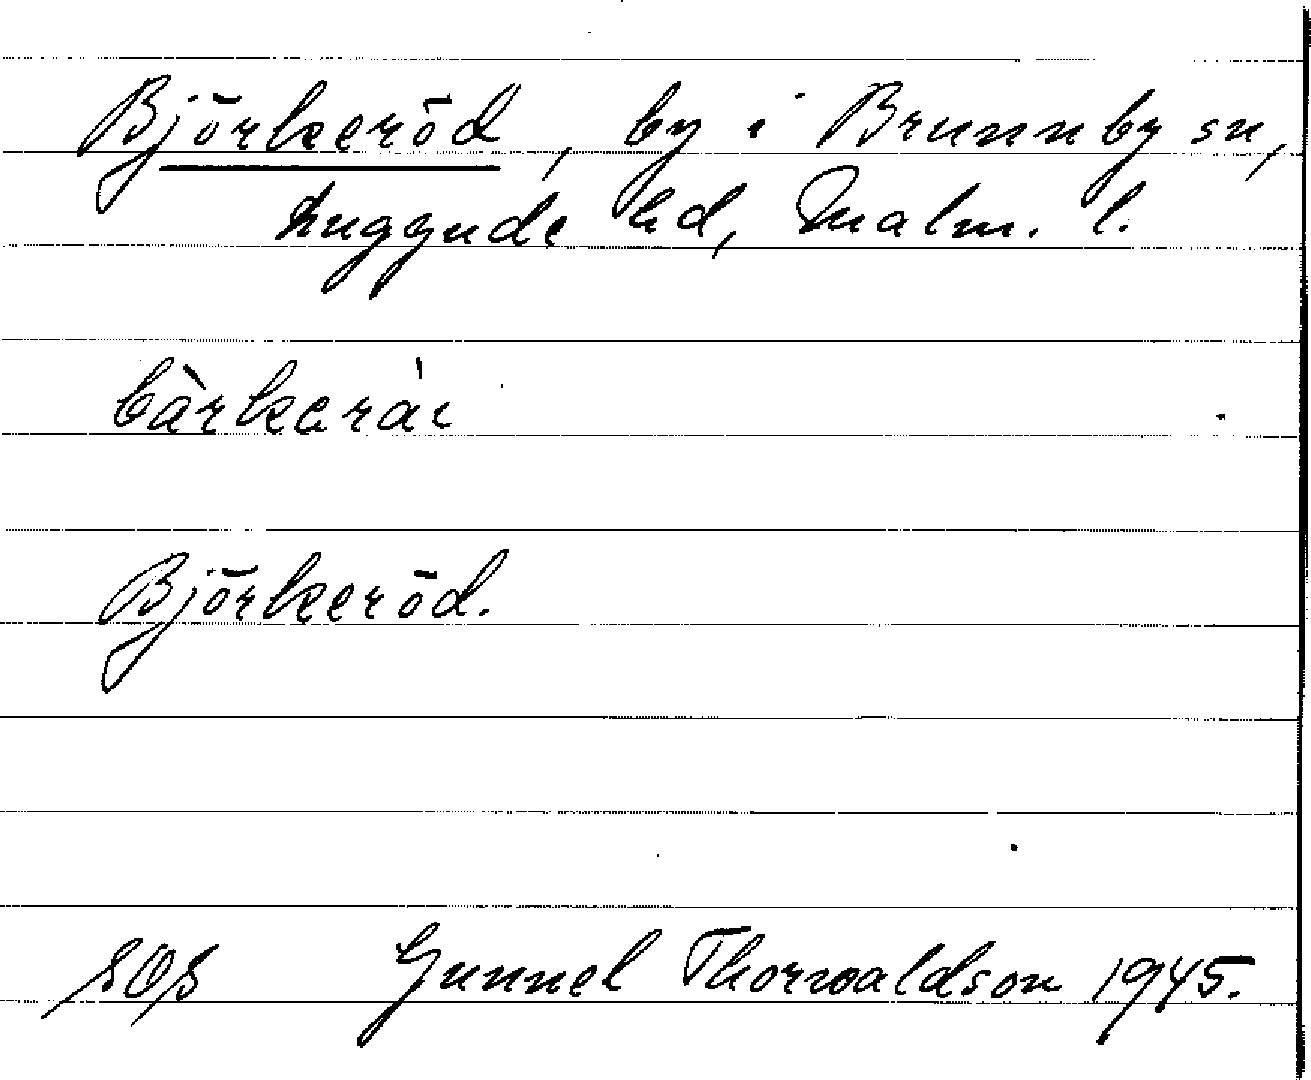 Björkeröd, by i Brunnby sn,
Luggude hd, Malm. l.
bàrkerái
Björkeröd.
SOS Gunnel Thorwaldson 1945.